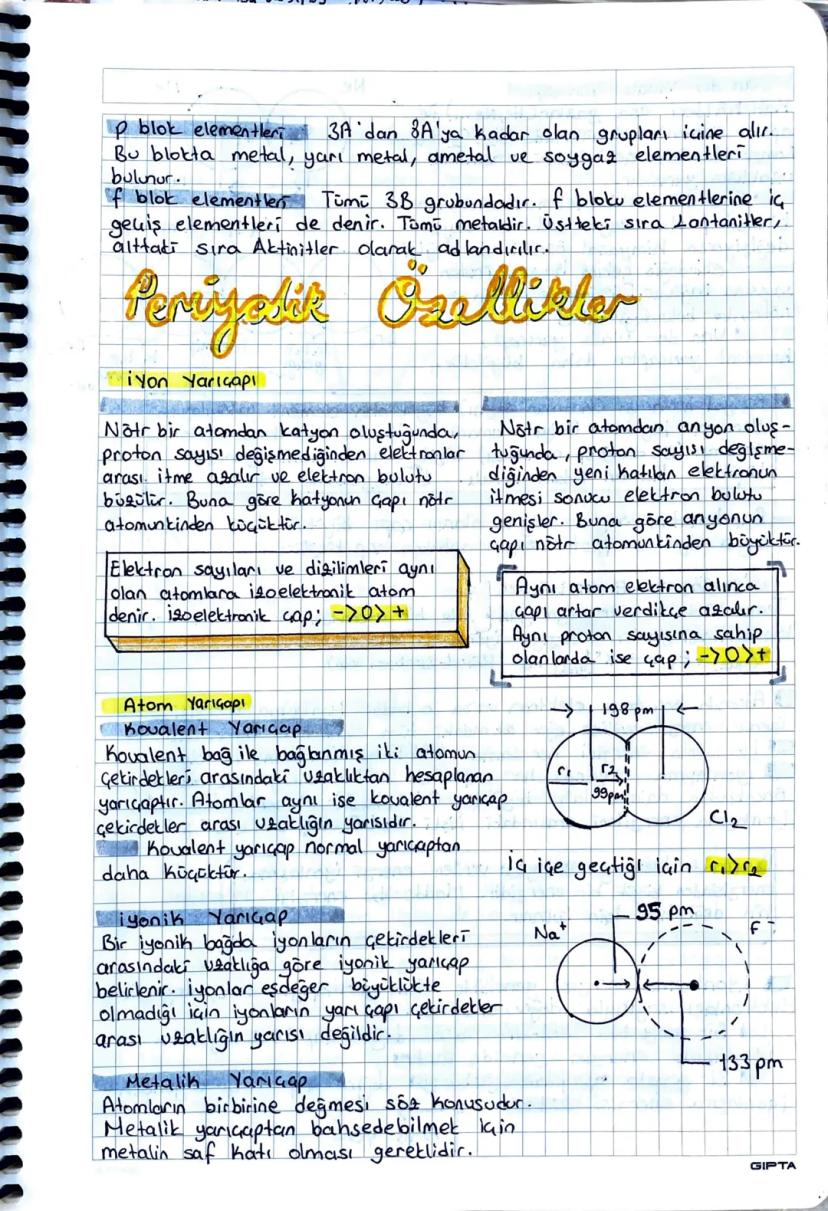 p blok elementleri 3A'dan 8A'ya kadar olan grupları içine alır.
Bu blokta metal, yarı metal, ametal ve soygaz elementleri
bulunur.
f blok elementleri Tümü 3B grubundadır. f bloku elementlerine iç
geçiş elementleri de denir. Tümü metaldir. Üstteki sıra Lantanitler,
alttaki sıra Aktinitler olarak adlandırılır.
Periyodik Özellikler
İyon Yarıçapı
Nötr bir atomdan katyon oluştuğunda,
proton sayısı değişmediğinden elektronlar
arası itme azalır ve elektron bulutu
büzülür. Buna göre katyonun çapı nötr
atomunkinden küçüktür.
Elektron sayıları ve dizilimleri aynı
olan atomlara izoelektronik atom
denir. izoelektronik çap; ->0>+
Nötr bir atomdan anyon oluş-
tuğunda, proton sayısı değişme-
diğinden yeni katılan elektronun
itmesi sonucu elektron bulutu
genişler. Buna göre anyonun
çapı nötr atomunkinden büyüktür.
Aynı atom elektron alınca
çapı artar verdikçe azalır.
Aynı proton sayısına sahip
olanlarda ise çap; ->0>+
Atom Yarıçapı
Kovalent Yarıçap
Kovalent bağ ile bağlanmış iki atomun
çekirdekleri arasındaki uzaklıktan hesaplanan
yarıçaptır. Atomlar aynı ise kovalent yarıçap
çekirdekler arası uzaklığın yarısıdır.
Kovalent yarıçap normal yarıçaptan
daha küçüktür.
198 pm
r₁ r₂
99pm
Cl₂
iç içe geçtiği için r₁>r₂
iyonik Yarıçap
Bir iyonik bağda iyonların çekirdekleri
arasındaki uzaklığa göre iyonik yarıçap
belirlenir. iyonlar eşdeğer büyüklükte
olmadığı için iyonların yarıçapı çekirdekler
arası uzaklığın yarısı değildir.
95 pm
Na⁺
F⁻
133 pm
Metalik Yarıçap
Atomların birbirine değmesi söz konusudur.
Metalik yarıçaptan bahsedebilmek için
metalin saf katı olması gereklidir.
GIPTA